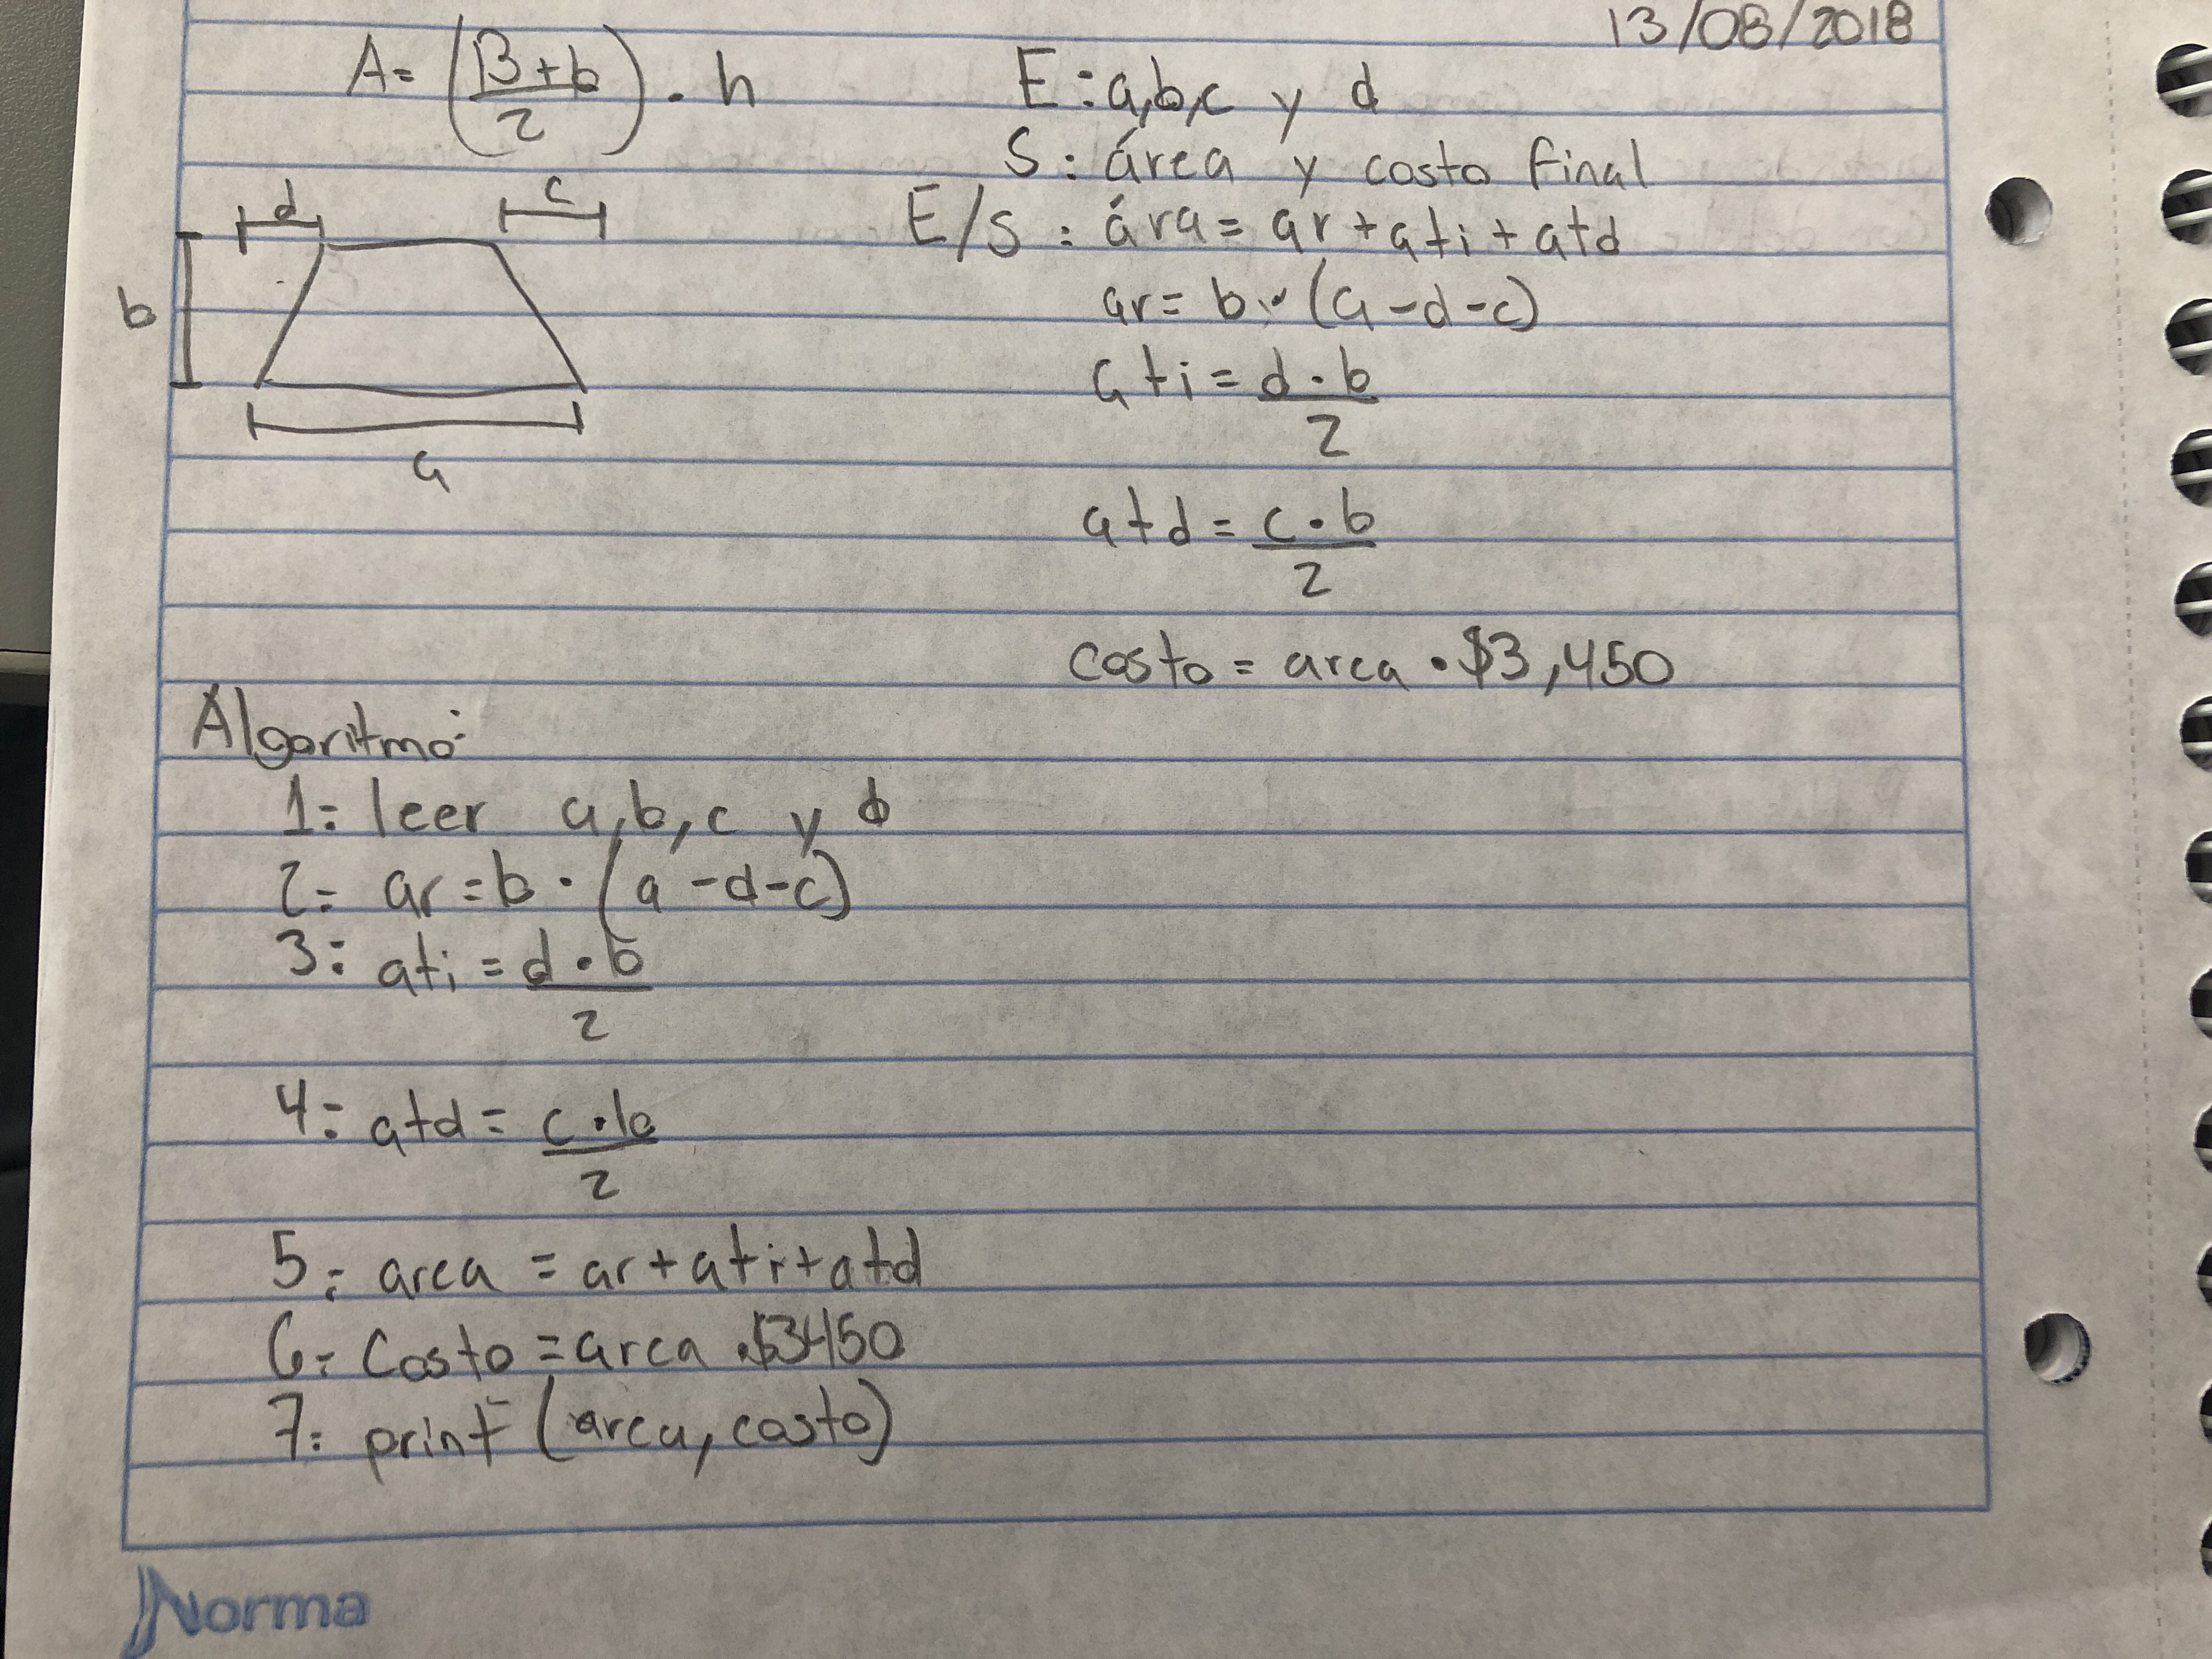 13/08/2018
A= (B+b/2) . h
d c
b
a
E: a,b,c y d
S: área y costo final
E/S: ára= ar+ati+atd
ar= b . (a-d-c)
ati= d.b/2
atd= c.b/2
costo= area . $3,450
Algoritmo:
1: leer a,b,c y d
2= ar=b . (a-d-c)
3: ati=d.b/2
4: atd= c.b/2
5: area = ar+ati+atd
6: Costo=area .$3450
7: print (area, costo)
Norma